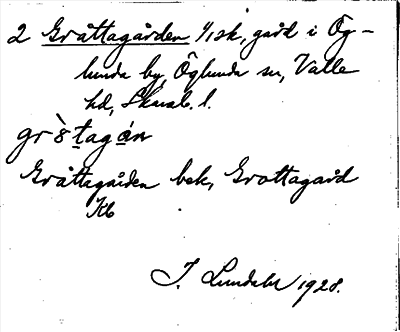 2 Gråttagården 1/1 sk, gård i Ög-
lunda by, Öglunda sn, Valle
hd, Skarab. l.
gr`ȯ̀tagán
Gråttagården bek, Grottagård
Kb
J. Lundahl 1928.